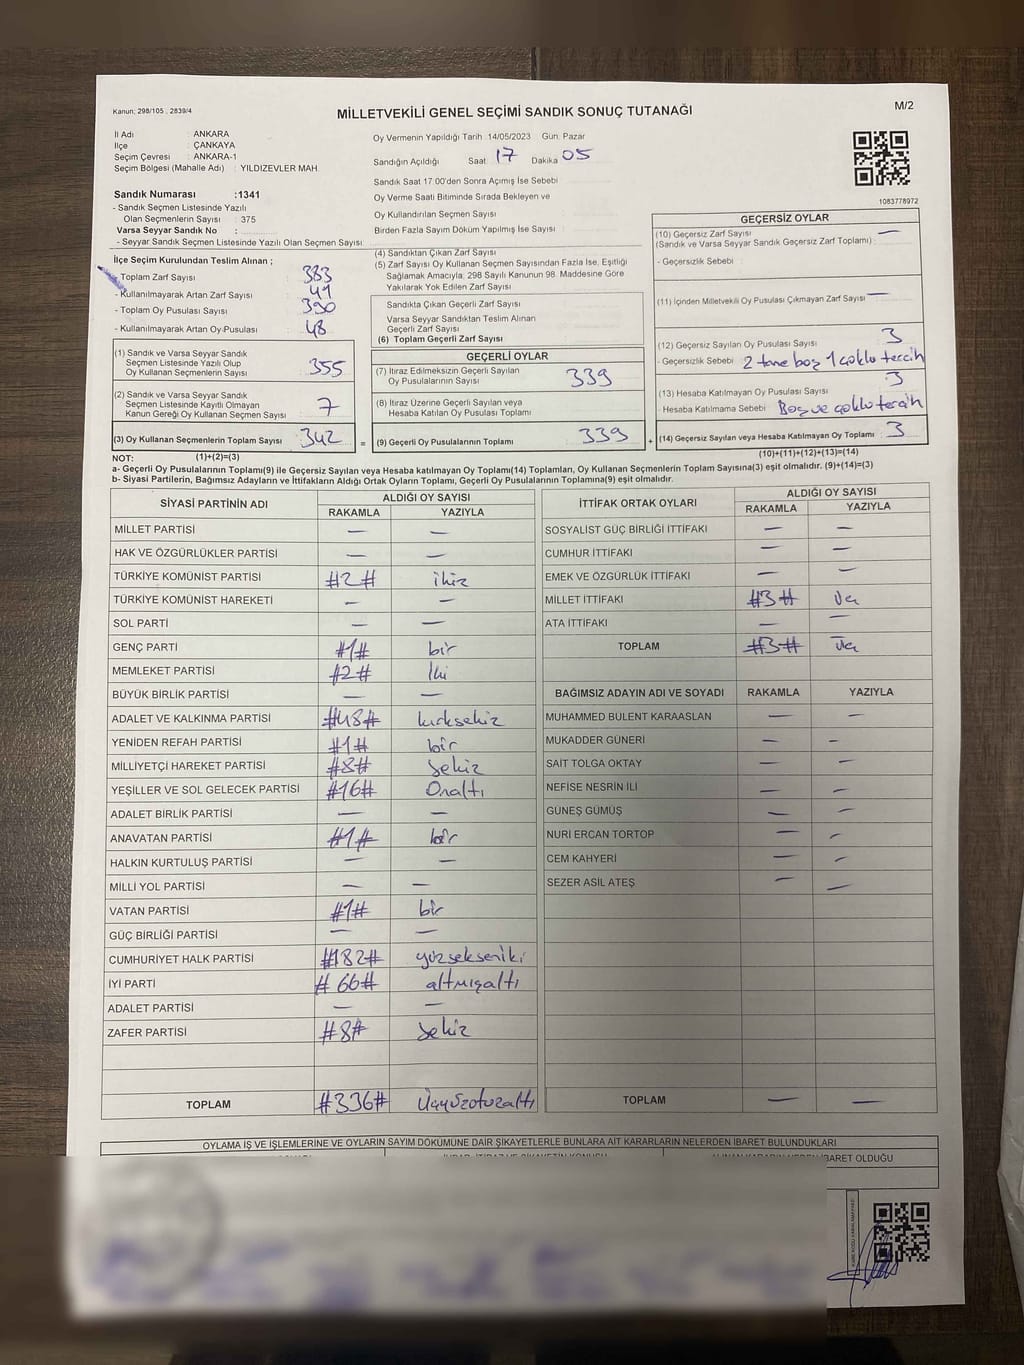 Kanun; 298/105 , 2839/4
MİLLETVEKİLİ GENEL SEÇİMİ SANDIK SONUÇ TUTANAĞI
M/2
İl Adı : ANKARA
İlçe : ÇANKAYA
Seçim Çevresi : ANKARA-1
Seçim Bölgesi (Mahalle Adı) : YILDIZEVLER MAH.
Sandık Numarası :1341
- Sandık Seçmen Listesinde Yazılı
Olan Seçmenlerin Sayısı : 375
Varsa Seyyar Sandık No :
- Seyyar Sandık Seçmen Listesinde Yazılı Olan Seçmen Sayısı
Oy Vermenin Yapıldığı Tarih :14/05/2023 Gün: Pazar
Sandığın Açıldığı Saat 17 Dakika 05
Sandık Saat 17.00'den Sonra Açımış İse Sebebi
Oy Verme Saati Bitiminde Sırada Bekleyen ve
Oy Kullandırılan Seçmen Sayısı
Birden Fazla Sayım Döküm Yapılmış İse Sayısı :
1083778972
İlçe Seçim Kurulundan Teslim Alınan ;
- Toplam Zarf Sayısı : 383
- Kullanılmayarak Artan Zarf Sayısı : 41
- Toplam Oy Pusulası Sayısı : 390
- Kullanılmayarak Artan Oy Pusulası : 48
(1) Sandık ve Varsa Seyyar Sandık
Seçmen Listesinde Yazılı Olup
Oy Kullanan Seçmenlerin Sayısı 355
(2) Sandık ve Varsa Seyyar Sandık
Seçmen Listesinde Kayıtlı Olmayan
Kanun Gereği Oy Kullanan Seçmen Sayısı 7
(3) Oy Kullanan Seçmenlerin Toplam Sayısı 342
(4) Sandıktan Çıkan Zarf Sayısı
(5) Zarf Sayısı Oy Kullanan Seçmen Sayısından Fazla İse, Eşitliği
Sağlamak Amacıyla; 298 Sayılı Kanunun 98. Maddesine Göre
Yakılarak Yok Edilen Zarf Sayısı
Sandıkta Çıkan Geçerli Zarf Sayısı
Varsa Seyyar Sandıktan Teslim Alınan
Geçerli Zarf Sayısı
(6) Toplam Geçerli Zarf Sayısı
GEÇERLİ OYLAR
(7) İtiraz Edilmeksizin Geçerli Sayılan
Oy Pusulalarının Sayısı 339
(8) İtiraz Üzerine Geçerli Sayılan veya
Hesaba Katılan Oy Pusulası Toplamı
= (9) Geçerli Oy Pusulalarının Toplamı 339 +
GEÇERSİZ OYLAR
(10) Geçersiz Zarf Sayısı —
(Sandık ve Varsa Seyyar Sandık Geçersiz Zarf Toplamı) :
- Geçersizlik Sebebi :
(11) İçinden Milletvekili Oy Pusulası Çıkmayan Zarf Sayısı —
(12) Geçersiz Sayılan Oy Pusulası Sayısı 3
- Geçersizlik Sebebi : 2 tane boş 1 çoklu tercih
(13) Hesaba Katılmayan Oy Pusulası Sayısı : 3
- Hesaba Katılmama Sebebi : Boş ve çoklu tercih
(14) Geçersiz Sayılan veya Hesaba Katılmayan Oy Toplamı : 3
NOT: (1)+(2)=(3)
(10)+(11)+(12)+(13)=(14)
a- Geçerli Oy Pusulalarının Toplamı(9) ile Geçersiz Sayılan veya Hesaba katılmayan Oy Toplamı(14) Toplamları, Oy Kullanan Seçmenlerin Toplam Sayısına(3) eşit olmalıdır. (9)+(14)=(3)
b- Siyasi Partilerin, Bağımsız Adayların ve İttifakların Aldığı Ortak Oyların Toplamı, Geçerli Oy Pusulalarının Toplamına(9) eşit olmalıdır.
SİYASİ PARTİNİN ADI ALDIĞI OY SAYISI
RAKAMLA YAZIYLA
MİLLET PARTİSİ — —
HAK VE ÖZGÜRLÜKLER PARTİSİ — —
TÜRKİYE KOMÜNİST PARTİSİ #2# ikiz
TÜRKİYE KOMÜNİST HAREKETİ — —
SOL PARTİ — —
GENÇ PARTİ #1# bir
MEMLEKET PARTİSİ #2# İki
BÜYÜK BİRLİK PARTİSİ — —
ADALET VE KALKINMA PARTİSİ #48# kırksekiz
YENİDEN REFAH PARTİSİ #1# bir
MİLLİYETÇİ HAREKET PARTİSİ #8# Sekiz
YEŞİLLER VE SOL GELECEK PARTİSİ #16# Onaltı
ADALET BİRLİK PARTİSİ — —
ANAVATAN PARTİSİ #1# bir
HALKIN KURTULUŞ PARTİSİ — —
MİLLİ YOL PARTİSİ — —
VATAN PARTİSİ #1# bir
GÜÇ BİRLİĞİ PARTİSİ — —
CUMHURİYET HALK PARTİSİ #182# yüzsekseniki
İYİ PARTİ #66# altmışaltı
ADALET PARTİSİ — —
ZAFER PARTİSİ #8# Sekiz
TOPLAM #336# Üçyüzotuzaltı
İTTİFAK ORTAK OYLARI ALDIĞI OY SAYISI
RAKAMLA YAZIYLA
SOSYALİST GÜÇ BİRLİĞİ İTTİFAKI — —
CUMHUR İTTİFAKI — —
EMEK VE ÖZGÜRLÜK İTTİFAKI — —
MİLLET İTTİFAKI #3# Üç
ATA İTTİFAKI — —
TOPLAM #3# Üç
BAĞIMSIZ ADAYIN ADI VE SOYADI RAKAMLA YAZIYLA
MUHAMMED BULENT KARAASLAN — —
MUKADDER GÜNERİ — —
SAİT TOLGA OKTAY — —
NEFİSE NESRİN İLİ — —
GÜNEŞ GÜMÜŞ — —
NURİ ERCAN TORTOP — —
CEM KAHYERİ — —
SEZER ASIL ATEŞ — —
TOPLAM — —
OYLAMA İŞ VE İŞLEMLERİNE VE OYLARIN SAYIM DÖKÜMÜNE DAİR ŞİKAYETLERLE BUNLARA AİT KARARLARIN NELERDEN İBARET BULUNDUKLARI
İBARET OLDUĞU